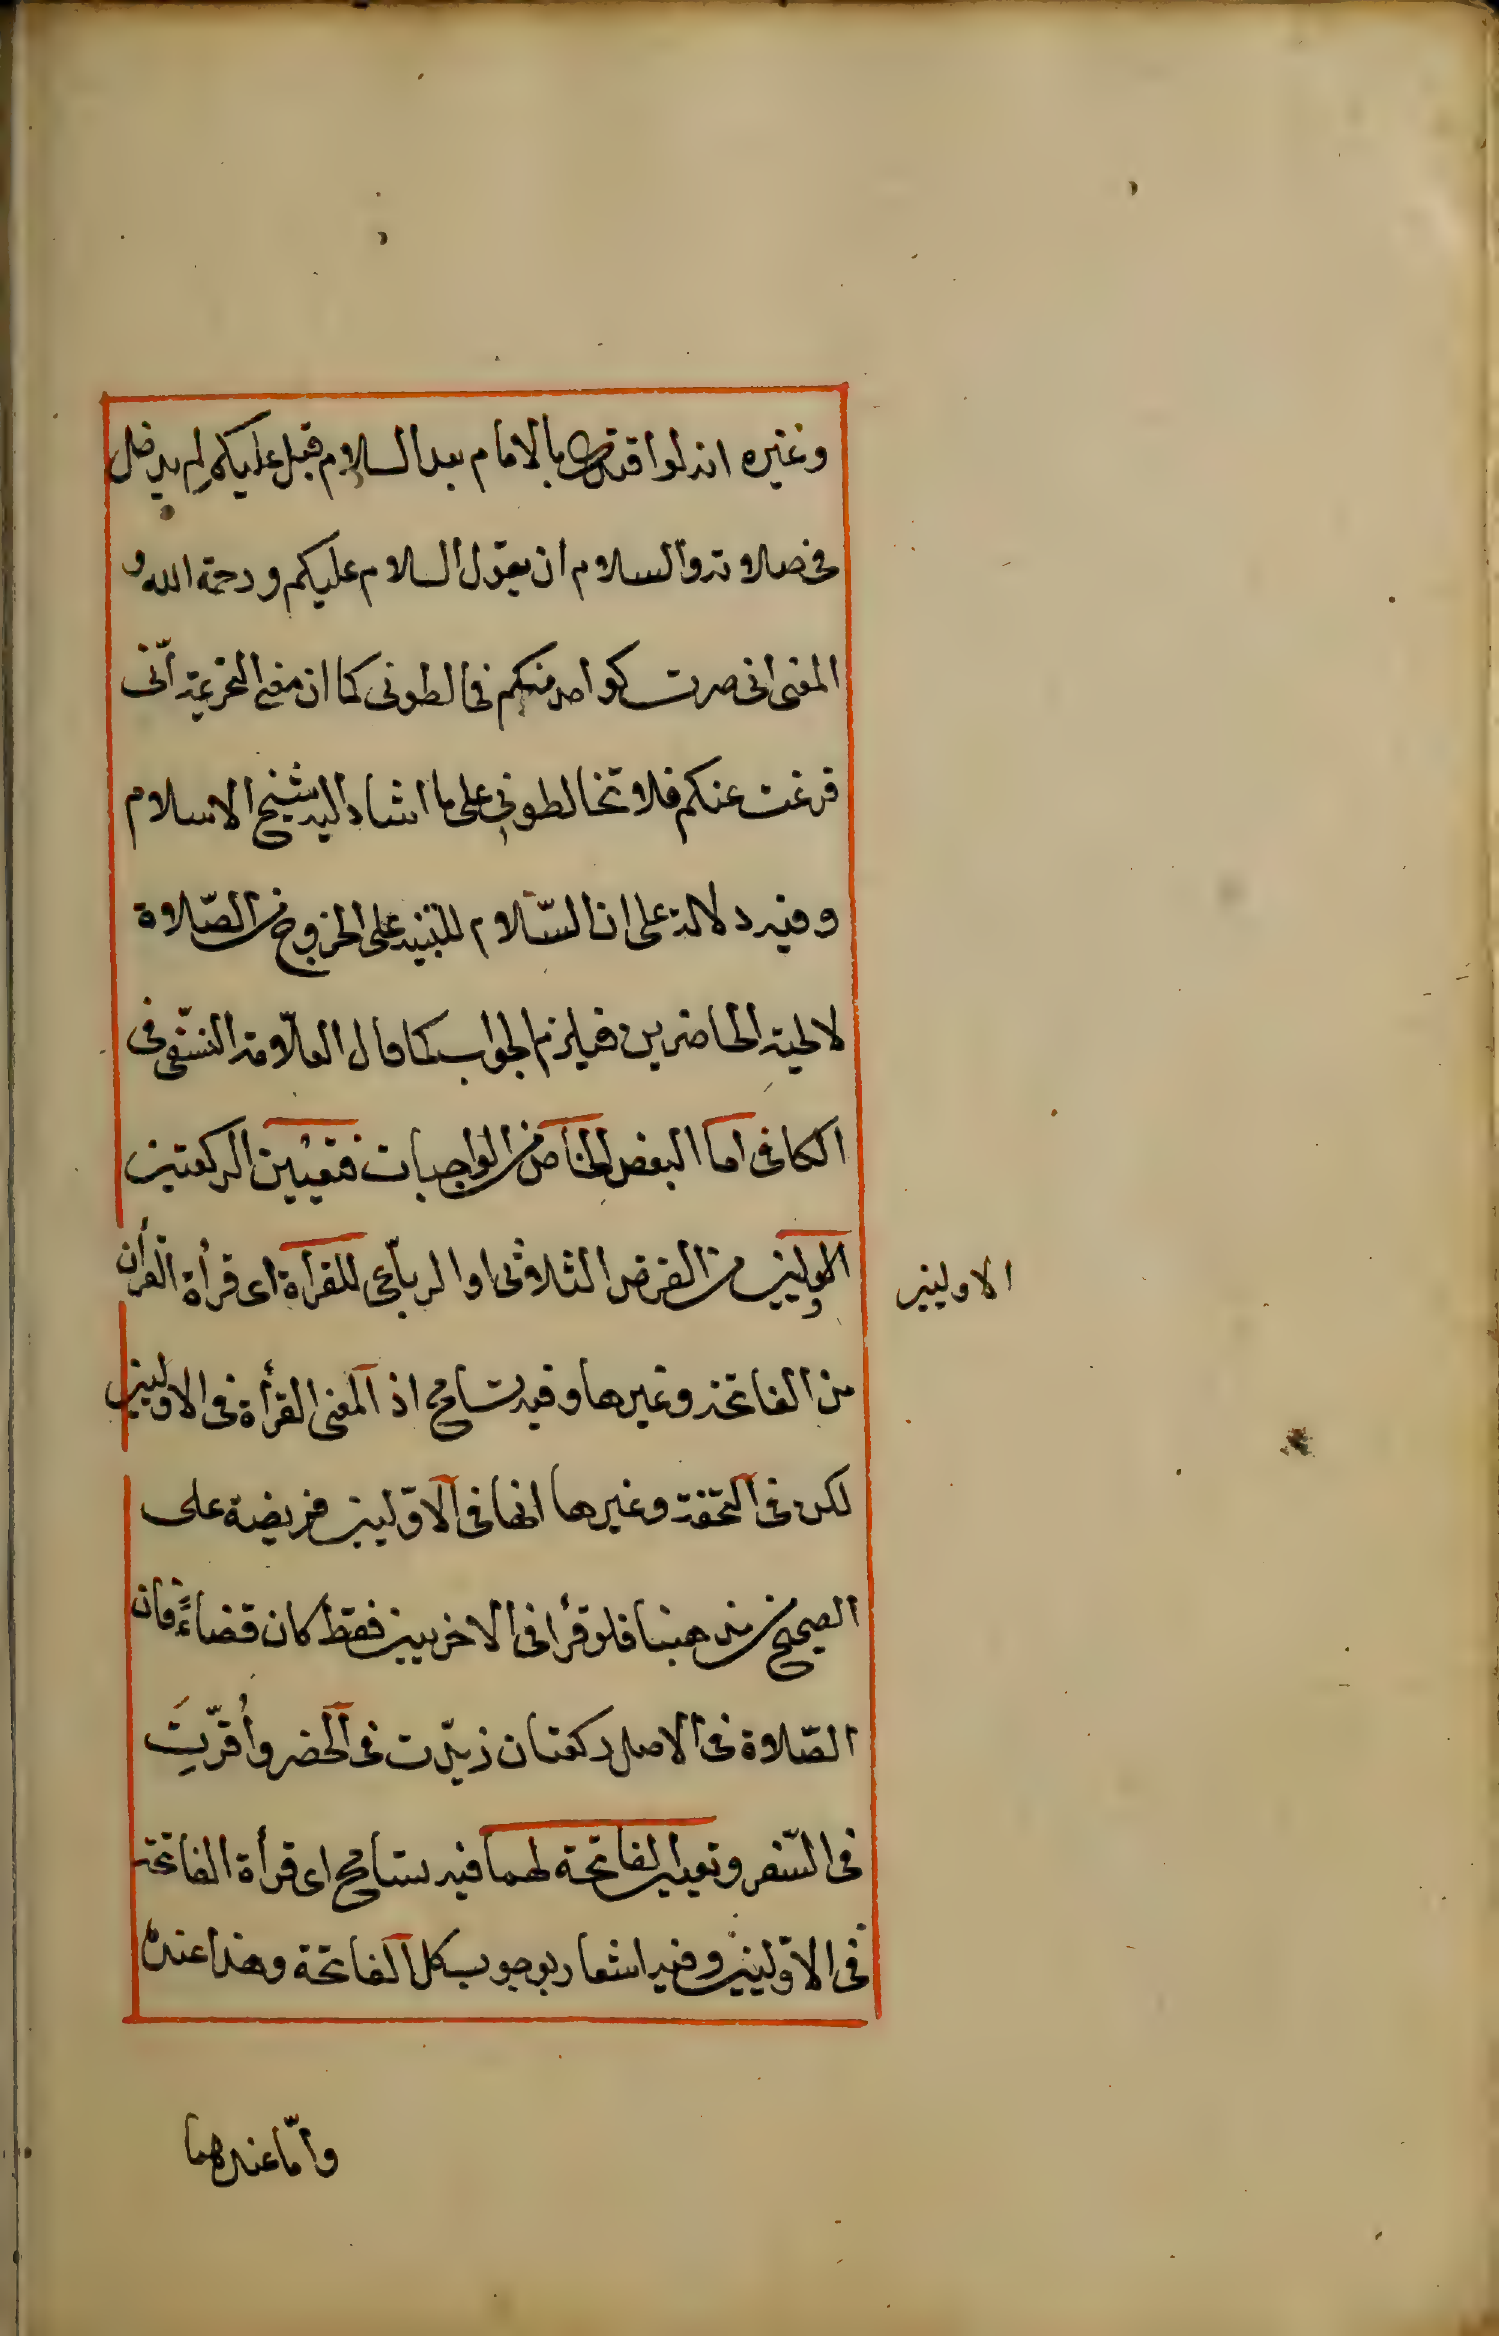 وغيره انه لو اقتدى بالامام بعد السلام قبل عليكم لم يدخل
فى صلاته والسلام ان يقول السلام عليكم ورحمة الله و
المعنى انى صرت كواحد منكم فخالطونى كما ان معنى التحريمة انّى
فرغت عنكم فلا تخالطونى على ما اشار اليه شيخ الاسلام
وفيه دلالة على ان السّلام للتنبيه على الخروج من الصّلاة
لا لحية الحاضرين فيلزم الجواب كما قال العلّامة النسّفى فى
الكافى اما البعض الخاص من الواجبات فتعيين الركعتين
الاوليين من الفرض الثلاثى او الرباّعى للقرأة اى قرأة القرأن
الاوليين
من الفاتحة وغيرها وفيه تسامح اذ المعنى القرأة فى الاوليين
لكن فى التحفة وغيرها انها فى الاوّليين فريضة على
الصحيح من مذهبنا فلو قرأ فى الاخريين فقط كان قضاءً فان
الصّلاة فى الاصل ركعتان زيدّت فى الحضر وأقرّت
فى السّفر وتعيين الفاتحة لهما فيه تسامح اى قرأة الفاتحة
فى الاوّليين وفيه اشعار بوجوب كل الفاتحة وهذا عنده
وامّا عندهما